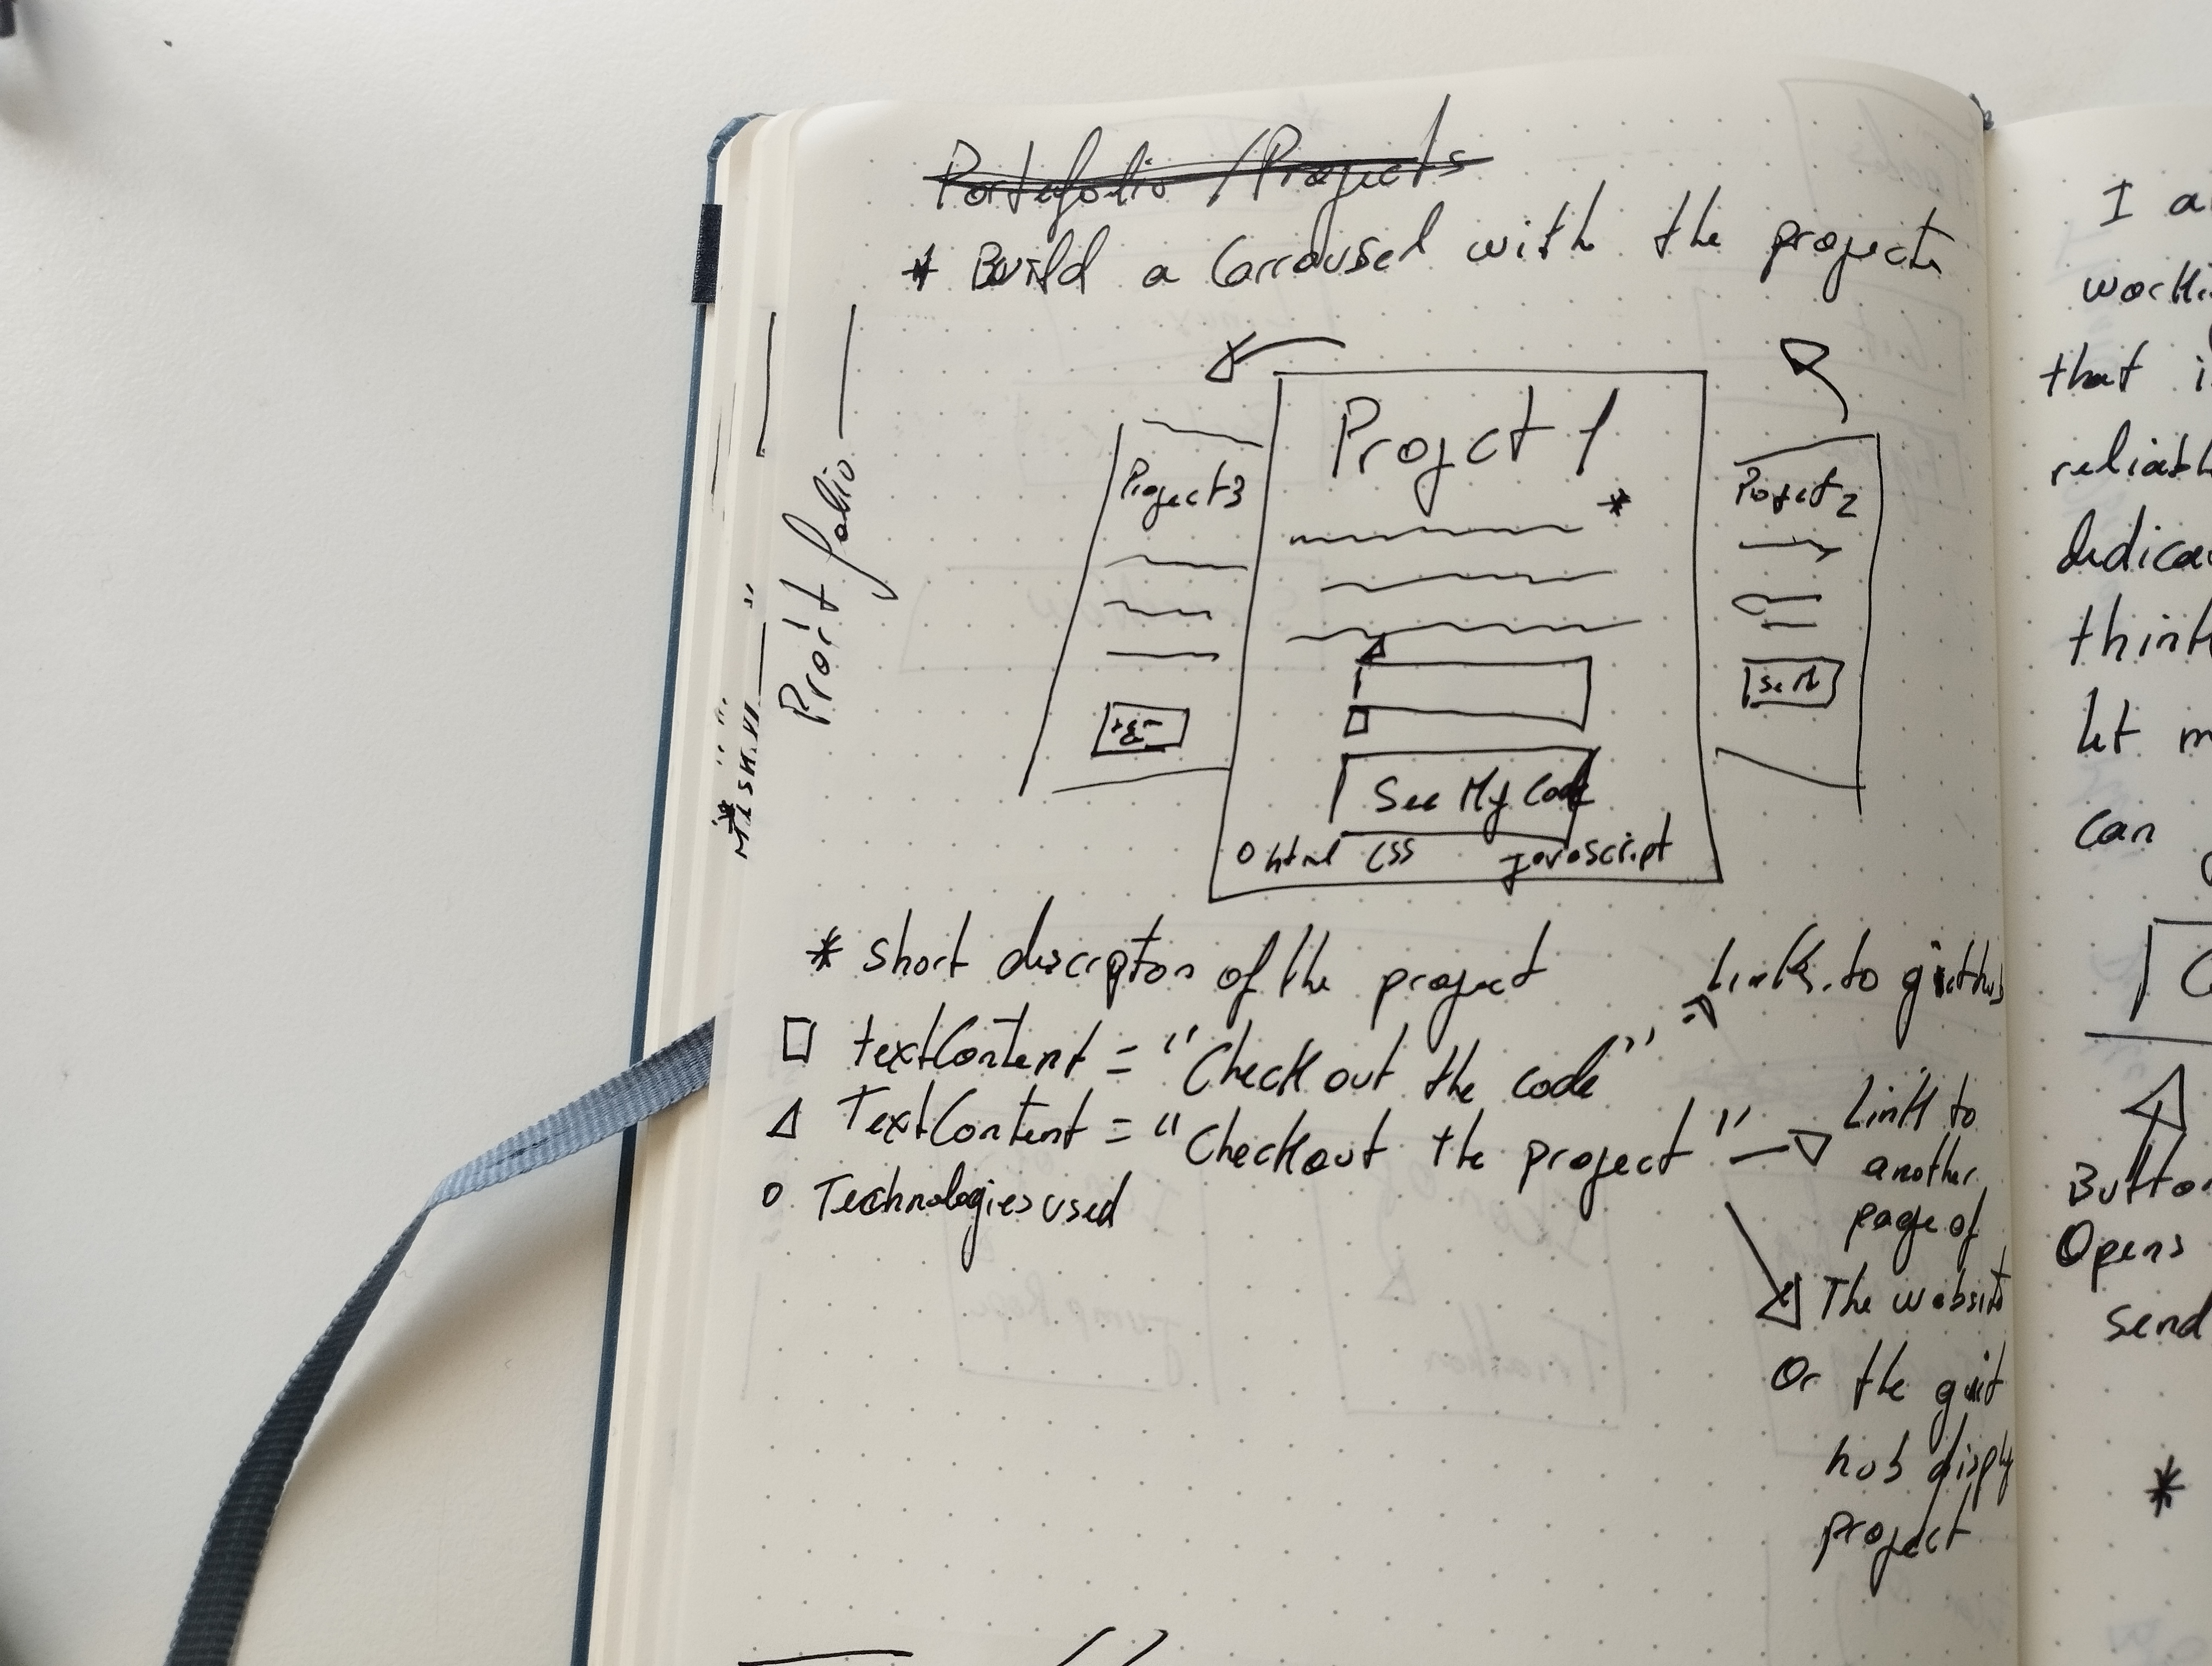 Portefolio / Projects
* Build a Carrousel with the projects
Project 1
Project 3
Project 2
*
See M
See My Code
o html CSS Javascript
Port folio
* short descripton of the project
□ textContent = "Check out the code" Link to github
△ TextContent = "Checkout the project" Link to
another
page of
The website
Or the guit
hub display
project
o Technologies used
I a
worki
that i
reliabl
dedica
think
let m
can
C
Button
Opens
send
*